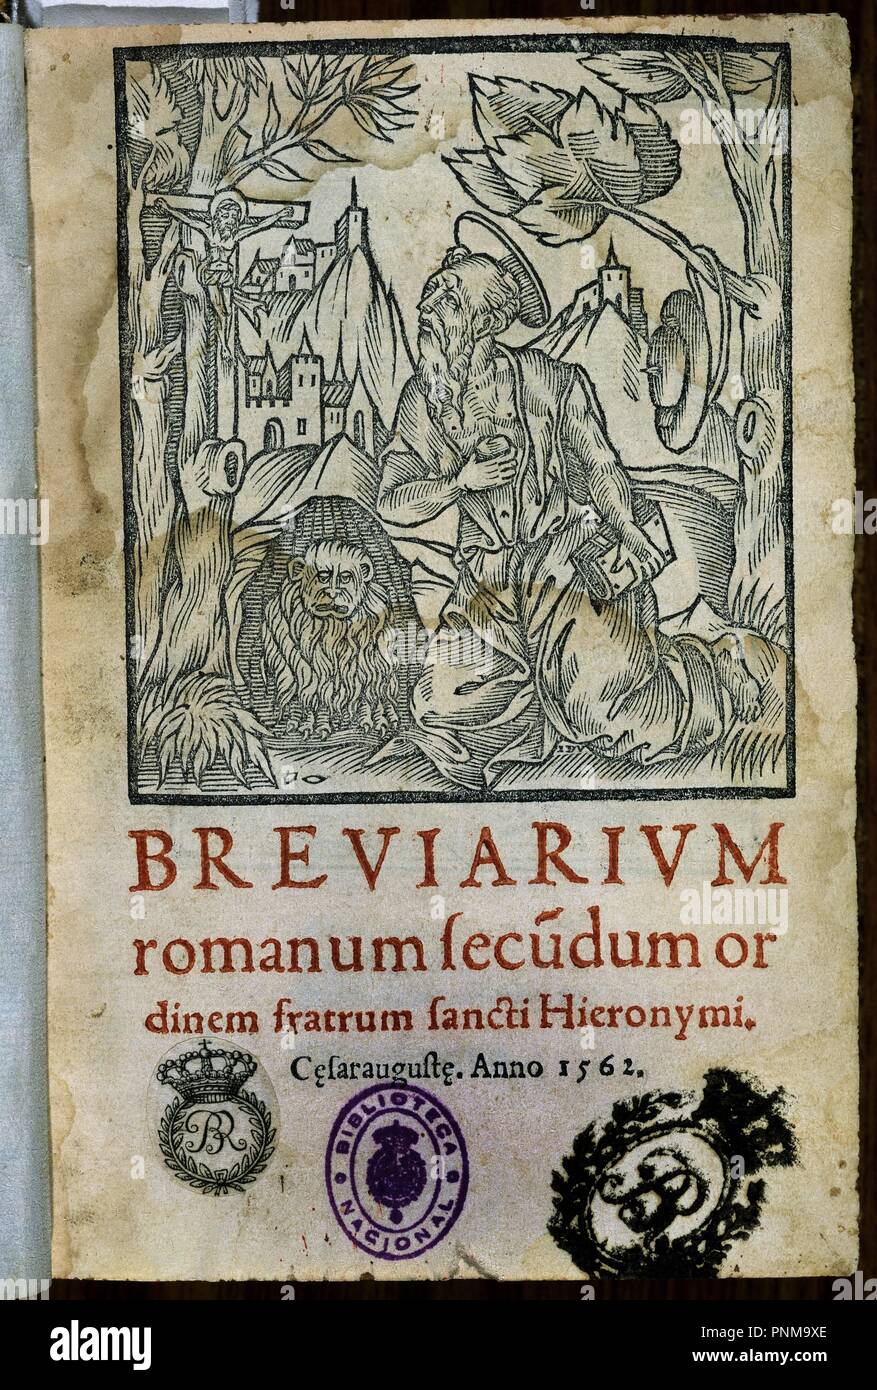 BREVIARIVM
romanum ſecūdum or
dinem fratrum ſancti Hieronymi.
Cęſarauguſtę. Anno 1562.
BR
BIBLIOTECA NACIONAL
alamy
Image ID: PNM9XE
www.alamy.com